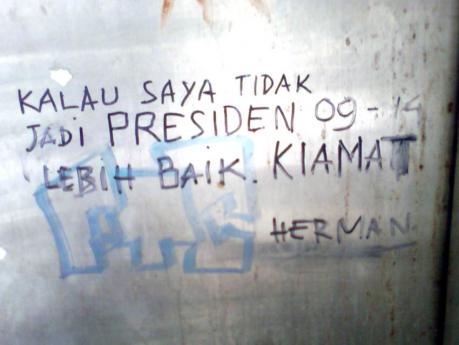 KALAU SAYA TIDAK
JADI PRESIDEN 09-14
LEBIH BAIK. KIAMAT
HERMAN